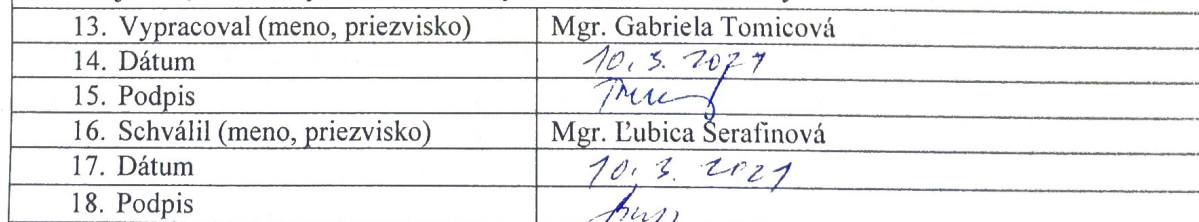 13. Vypracoval (meno, priezvisko) Mgr. Gabriela Tomicová
14. Dátum 10. 3. 2021
15. Podpis
16. Schválil (meno, priezvisko) Mgr. Ľubica Serafinová
17. Dátum 10. 3. 2021
18. Podpis